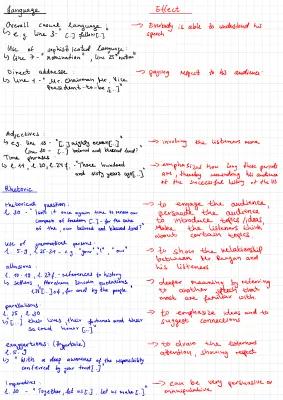 Language
Effect
Overall casual language
→ Everybody is able to understand his
↳ e.g. line 3 "[..] fellow [..]"
speech
Use of sophisticated language:
↳ line 7 - "nomination", line 25 "nation"
Direct addresse
→ paying respect to his audience
↳ line 1 - "Mr. Chairman, Mr. Vice
President-to-be [..]"
Adjectives
→ involving the listeners more
↳ e.g. line 10 - "[..] mighty ocean [..]"
(line 30 - [..] beloved and blessed land?"
Time phrases
→ emphasize how long these periods
"Three hundred
and sixty years ago [..]"
are, thereby reminding his audience
of the successful history of the US
Rhetoric
rhetorical question:
→ to engage the audience,
l. 30 - "Isn't it once again time to renew our
persuade the audience
compact of freedom [..] - for the sake
introduce topics/ideas
of this, our beloved and blessed land?"
Make the listeners think
about certain topics
Use of personal pronouns:
→ to show the relationship
"your", "I", "our"
between Mr. Reagan and
his listeners
allusions:
references to history
→ deeper meaning by referring
to another speech that
most are familiar with
parallelisms
→ to emphasize ideas and to
↳ [..] their lives, their fortunes and their
suggest connections
sacred honor [..]"
exaggerations (Hyperbole)
→ to draw the listeners
l. 5-9
attention, showing respect
"With a deep awareness of the responsibility
conferred by your trust [..]"
Imperatives
→ can be very persuasive or
l. 30 - "Together, let us [..]. Let us make [..]"
manipulative